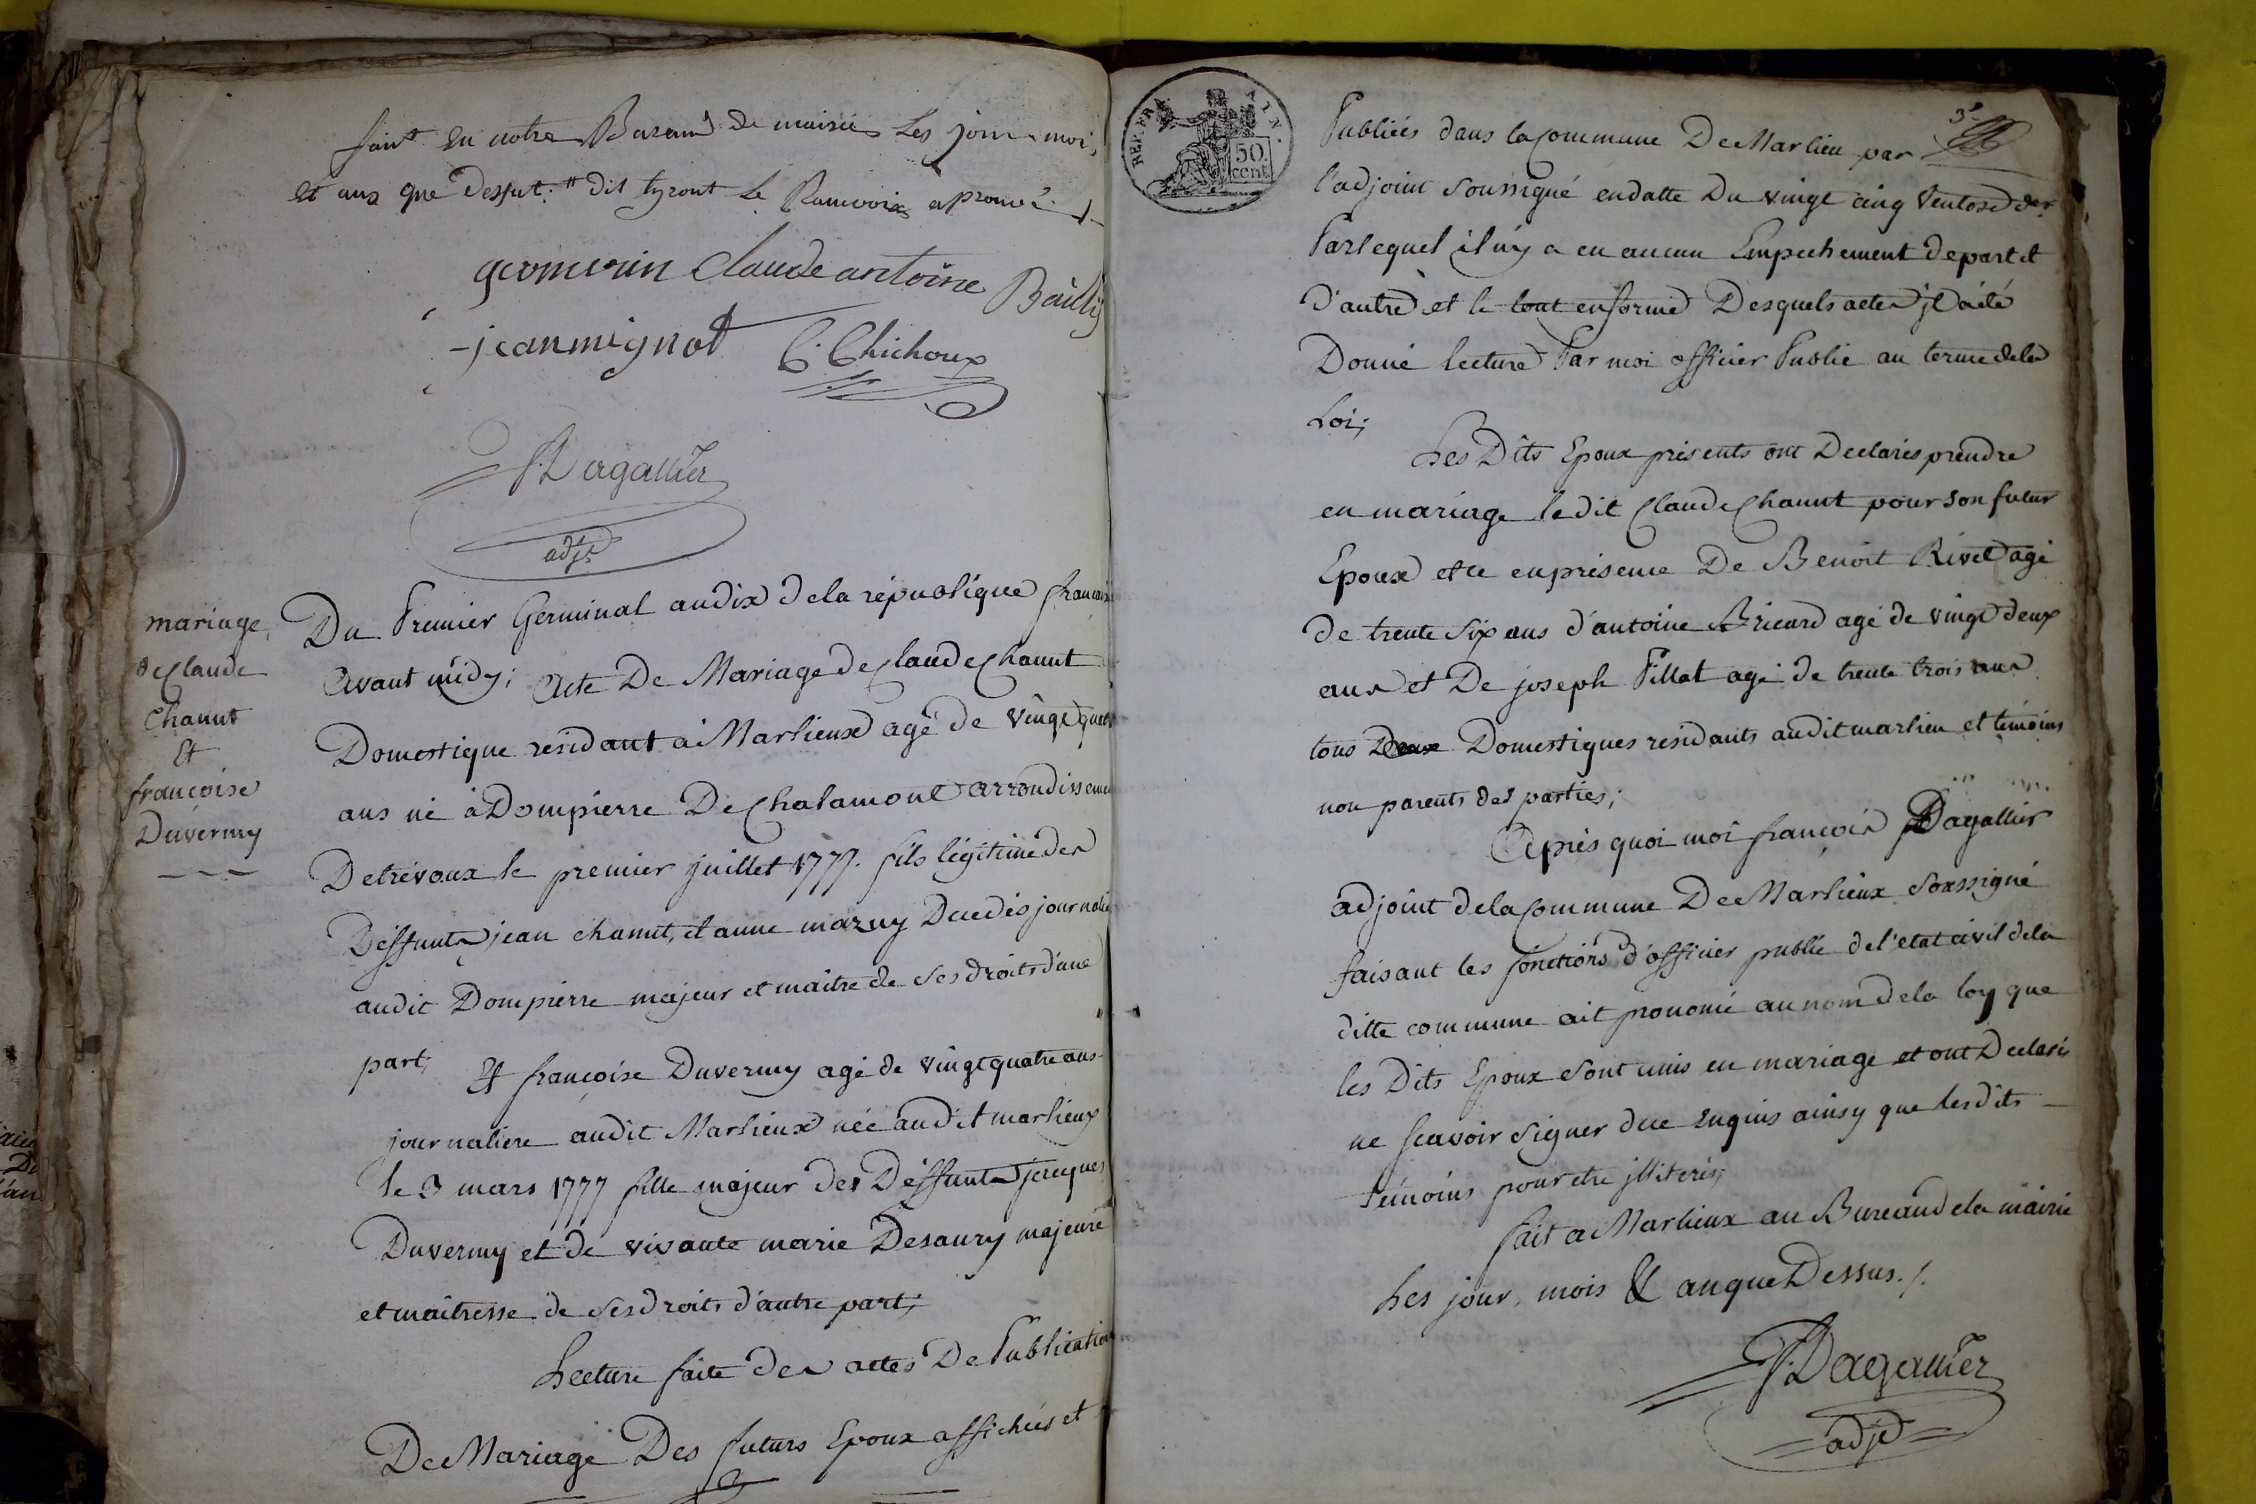 fait en notre Bureau de mairie Les jour, mois
et ans que dessut. " dit tyront Le Ranvoix aprouvé
germain Claude antoine Bailly
jean mignot C. Chichoux
f. Dagallier
adjt
mariage
de Claude
Chanut
Et
françoise
Duvermy
Du Premier Germinal an dix de la république françai
Avant midy; Acte De Mariage de Claude Chanut
Domestique residant a Marlieux agé de vingt quat
ans né à Dompierre De Chalamont arrondisseme
De trévoux le premier juillet 1777. fils légitime des
Deffunts jean chanut, et anne mazuy Decedés journalie
audit Dompierre majeur et maitre de ses droits d'une
part; Et françoise Duvermy agé de vingt quatre ans
journaliere audit Marlieux née audit marlieux
le 3 mars 1777 fille majeur des Deffunts jacques
Duvermy et de vivante marie Desaury majeure
et maitresse de ses droits d'autre part;
Lecture faite des actes De Publication
De Mariage Des futurs Epoux affichées et
REP. FRA 50 cent
3e
Publiées dans la Commune De Marlieu par
l'adjoint soussigné en datte Du vingt cinq Ventose der
Par lequel il n'y a eu aucun Empechement de part et
d'autre et le tout en forme Desquels actes jl a été
Donné lecture Par moi officier Public au terme de la
Loi;
Les Dits Epoux présents ont Declarés prendre
en mariage le dit Claude Chanut pour son futur
Epoux et ce en présence De Benoit Rivet agé
de trente six ans d'antoine Bricard agé de vingt deux
ans et De joseph Pillat agé de trente trois ans
tous Domestiques residants audit marlieu et témoins
non parents des parties;
Après quoi moi françois Dagallier
adjoint de la Commune De Marlieux soussigné
faisant les fonctions d'officier public de l'etat civil de la
ditte commune ait prononcé au nom de la loy que
les Dits Epoux sont unis en mariage et ont Declarés
ne scavoir signer de ce enquis ainsy que lesdits
témoins pour etre jlliterés;
fait a Marlieux au Bureau de la mairie
Les jour, mois & an que Dessus./.
f. Dagallier
adjt